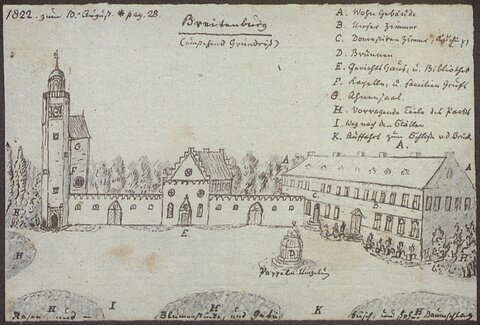 1822. zum 13. August. * pag. 28.
Breitenburg
(umstehend Grundriß)
A. Wohn Gebäude.
B. Unser Zimmer
C. Domestiken Zimmer, Küche pp
D. Brunnen
E. Gerichts Haus, u. Bibliothek
F. Kapelle, u. Familien Gruft
G. Ahnensaal.
H. Vorragende Teile des Parks
I. Weg nach den Ställen
K. Auffahrt zum Schloße v. d. Brück
A.
A
A
B
G
F
C
E.
D.
H
H
H
H
H
I
K
Rasen und
Blumenstücke und
Busch, und hoher Baumschlag